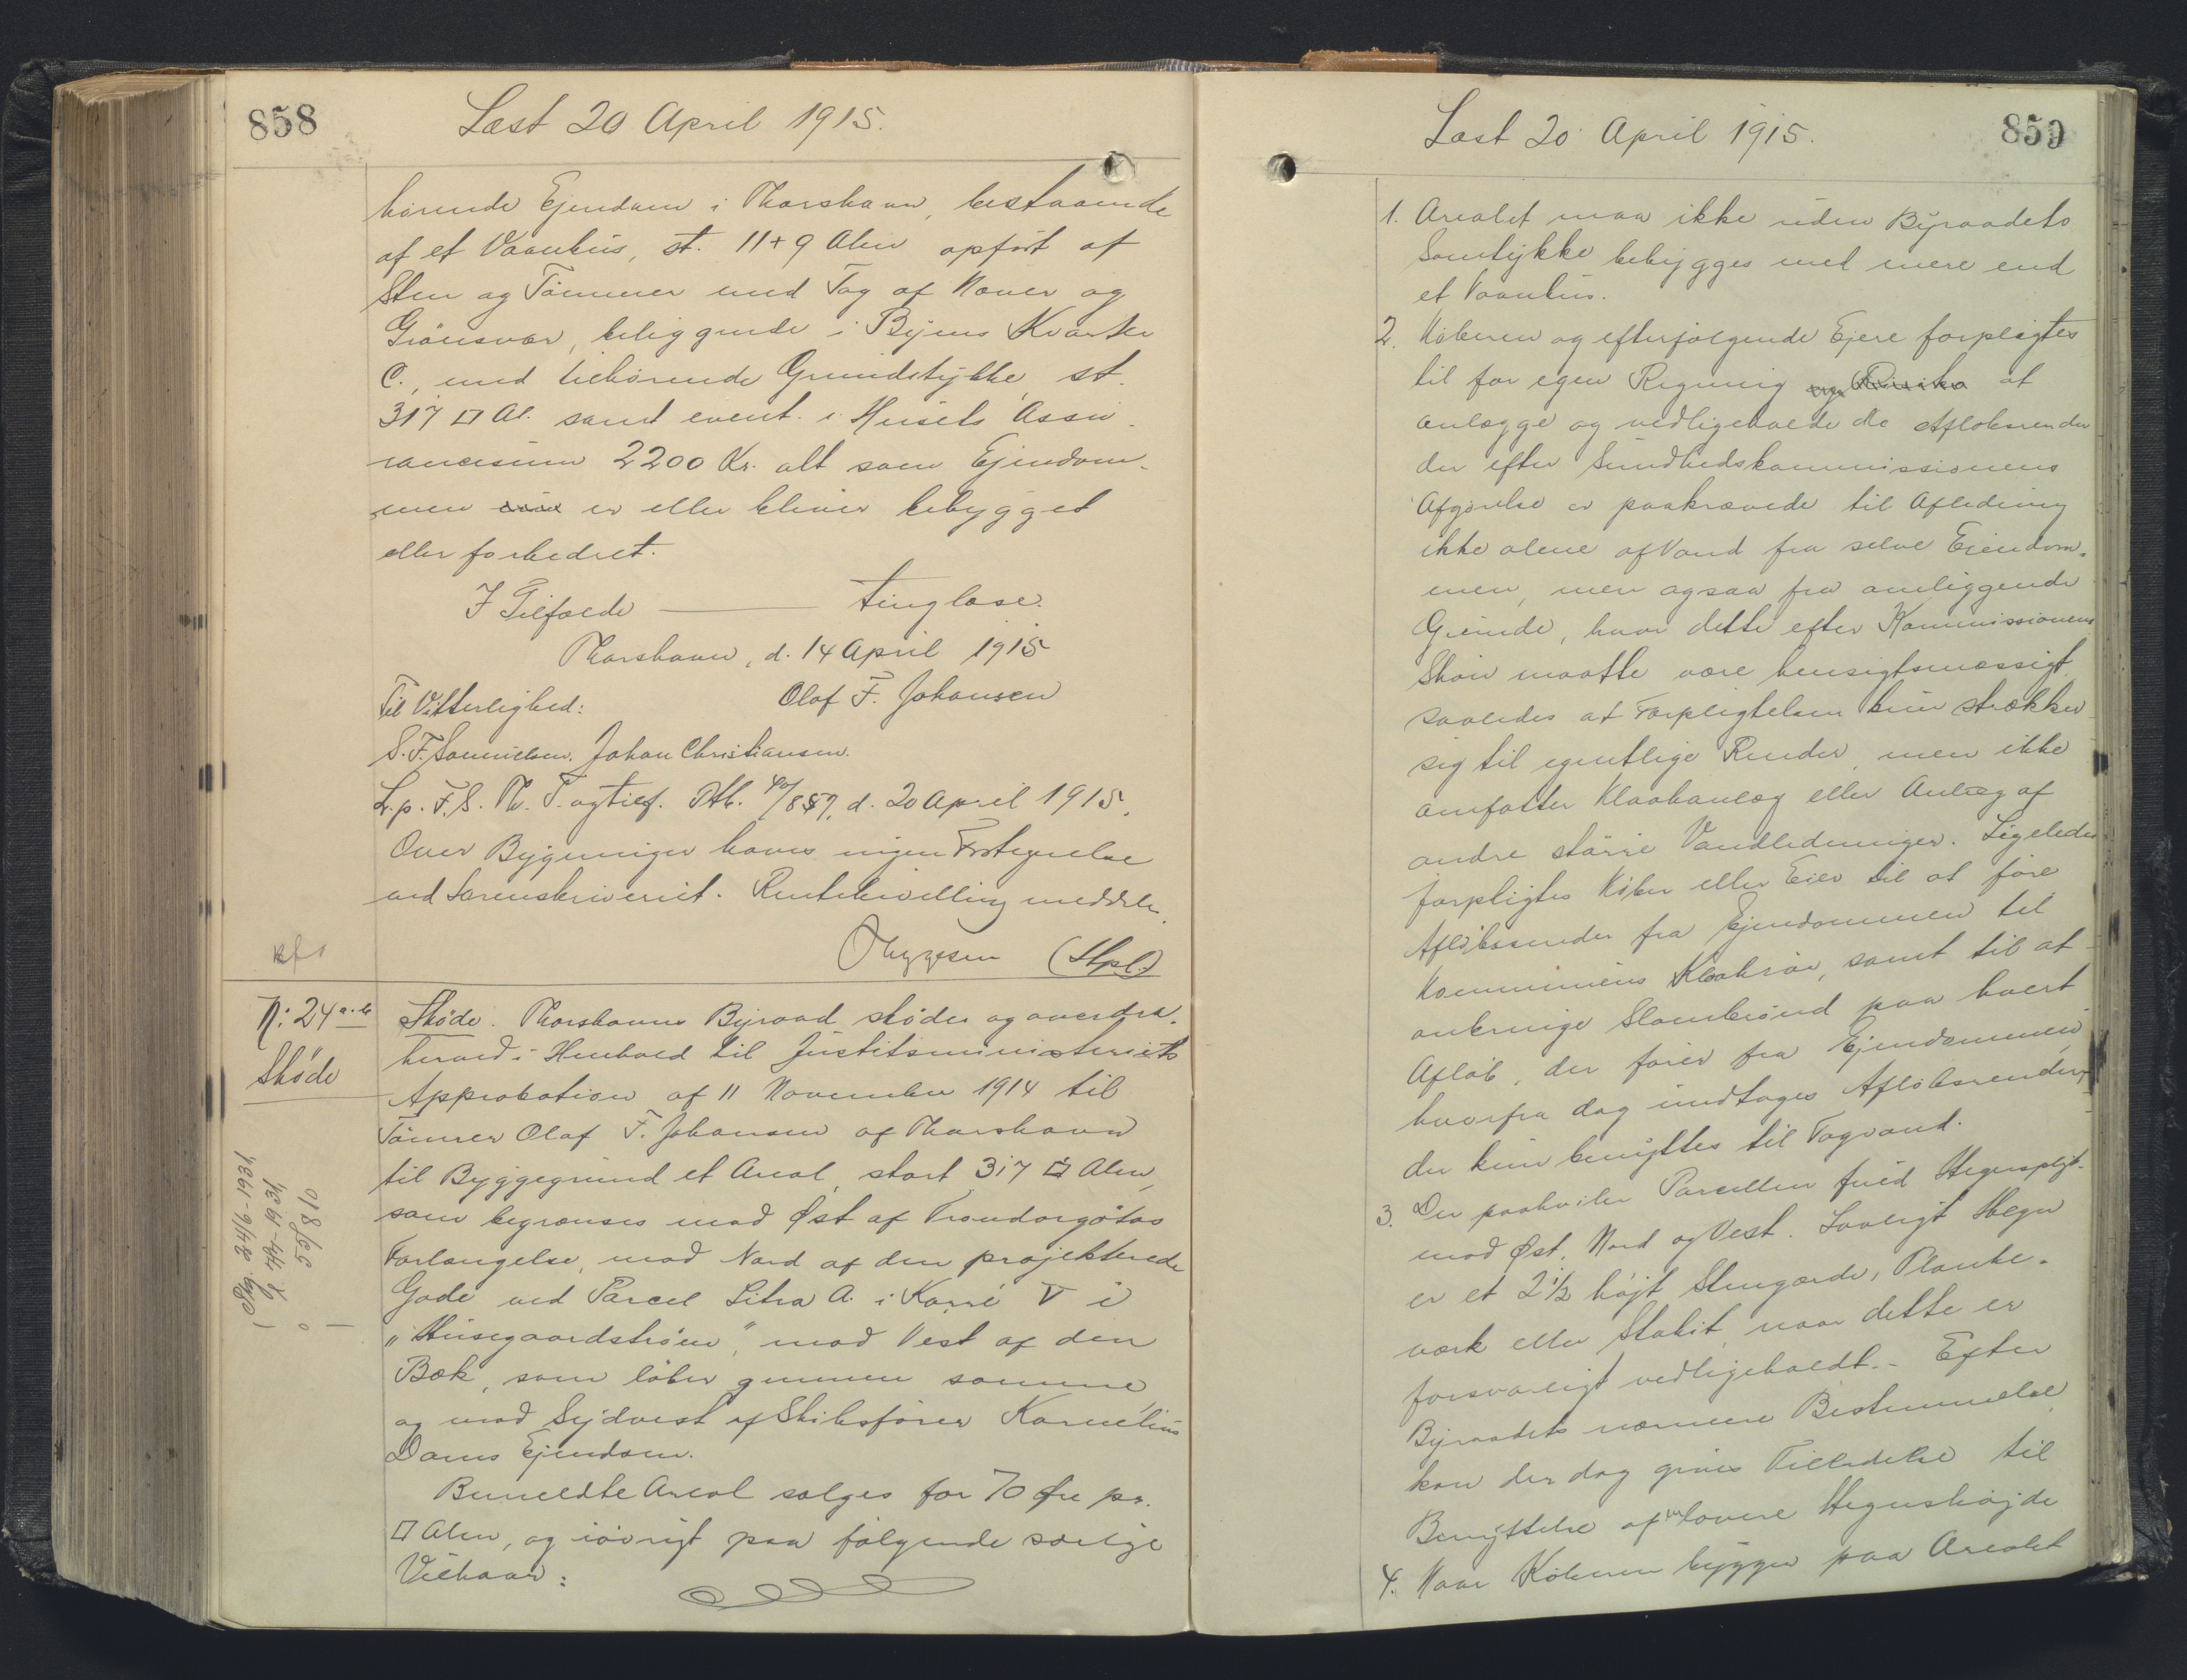 858
Læst 20 April 1915.
hørende Ejendom i Thorshavn, bestaaende
af et Vaanhus, st. 11 + 9 Alen opført af
Sten og Tømmer med Tag af Næver og
Grønsvær, beliggende i Byens Kvarter
C., med tilhørende Grundstykke, st.
317 □ Al. samt event. i Husets Assu-
rancesum 2200 Kr. alt som Ejendom-
men er eller bliver bebygget
eller forbedret.
I Tilfælde ——— tinglæse.
Thorshavn, d. 14 April 1915
Til Vitterlighed: Olaf F. Johansen
S. F. Samuelsen. Johan Christiansen.
L. p. F. S. Th. T. og tilf. Ptb. 40/857, d. 20 April 1915.
Over Bygninger haves ingen Fortegnelse
ved Sorenskriveriet. Rentebevilling meddelt.
(Stpl.)
N: 24 a.b
Skøde
Skøde. Thorshavns Byraad skøder og overdra-
herved i Henhold til Justitsministeriets
Approbation af 11 November 1914 til
Tømrer Olaf F. Johansen af Thorshavn
til Byggegrund et Areal, stort 317 □ Alen,
som begrænses mod Øst af Trondargøtas
Forlængelse, mod Nord af den projekterede
Gade ved Parcel Litra A. i Karré V i
„Husegaardstrøen", mod Vest af den
Bæk, som løber gennem samme
og mod Sydvest af Skibsfører Kornelius
Dams Ejendom.
Bemeldte Areal sælges for 70 Øre pr.
□ Alen, og iøvrigt paa følgende særlige
Vilkaar:
Læst 20 April 1915.
859
1. Arealet maa ikke uden Byraadets
Samtykke bebygges med mere end
et Vaanhus.
2. Køberen og efterfølgende Ejere forpligtes
til for egen Regning og Risiko at
anlægge og vedligeholde de Afløbsrender
der efter Sundhedskommissionens
Afgørelse er paakrævede til Afledning
ikke alene af Vand fra selve Ejendom-
men, men ogsaa fra omliggende
Grunde, hvor dette efter Kommissionens
Skøn maatte være hensigtsmæssigt,
saaledes at Forpligtelsen kun strækker
sig til egentlige Render, men ikke
omfatter Kloakanlæg eller Anlæg af
andre større Vandledninger. Ligeledes
forpligtes Køber eller Ejer til at føre
Afløbsrender fra Ejendommen til
Kommunens Kloakrør, samt til at
anbringe Slambrønd paa hvert
Afløb, der fører fra Ejendommen,
hvorfra dog undtages Afløbsrender,
der kun benyttes til Tagvand.
3. Der paahviler Parcellen fuld Hegnspligt
mod Øst, Nord og Vest. Lovligt Hegn
er et 2½ højt Stengærde, Planke-
værk eller Stakit, naar dette er
forsvarligt vedligeholdt. - Efter
Byraadets nærmere Bestemmelse
kan der dog gives Tilladelse til
Benyttelse af lavere Hegnshøjde
4. Naar Køberen bygger paa Arealet